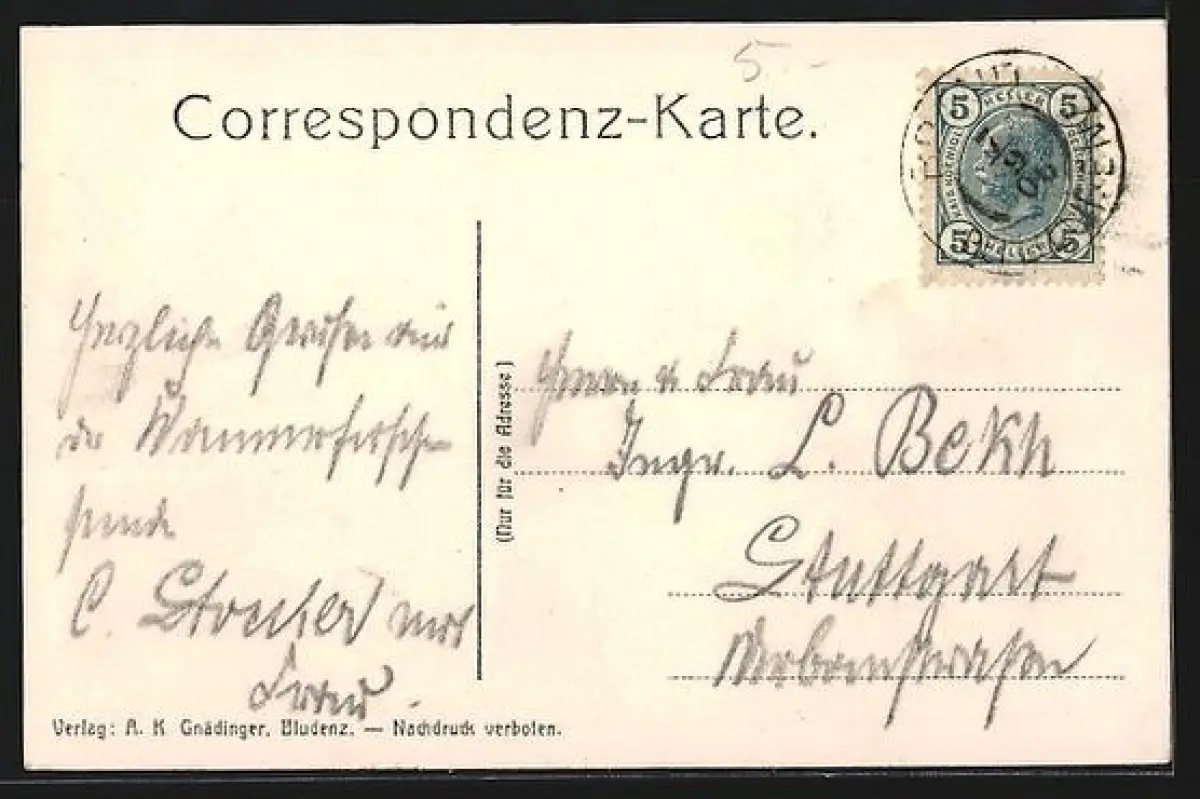 5.-
Correspondenz-Karte.
5 HELLER 5
5 HELLER 5
9 06
Herzliche Grüße aus
der Sommerfrische
sende
C. Stocker mit
Frau.
(Nur für die Adresse)
Herrn u Frau
Ingr. L. Bekh
Stuttgart
Urbanstrasse
Verlag: A. K Gnädinger, Bludenz. — Nachdruck verboten.